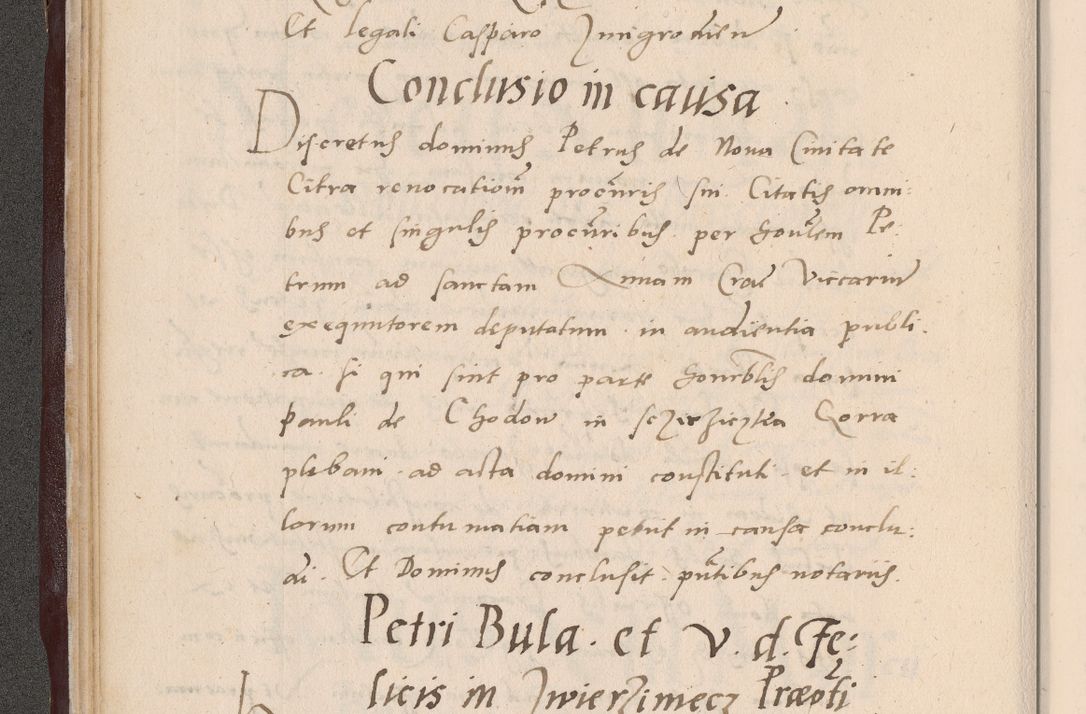 Et legali Casparo Zmigrodien
Conclusio in causa
Discretus dominus Petrus de Nova Civitate
Citra revocationem procuris sui Citatis omni:
bus et singulis procuribus per honlem Pe:
trum ad sanctam Annam Crac Viccarium
exequutorem deputatum in audientia publi.
ca si qui sint pro parte honorablis domini
Pauli de Chodow in Gorra
plebani ad acta domini constituti et in il:
lorum contumatiam petiit in causa conclu:
di. Et Dominus conclusit. pntibus notariis.
Petri Bula. et v. d. Fe:
licis in Zwierzimecz Præoti